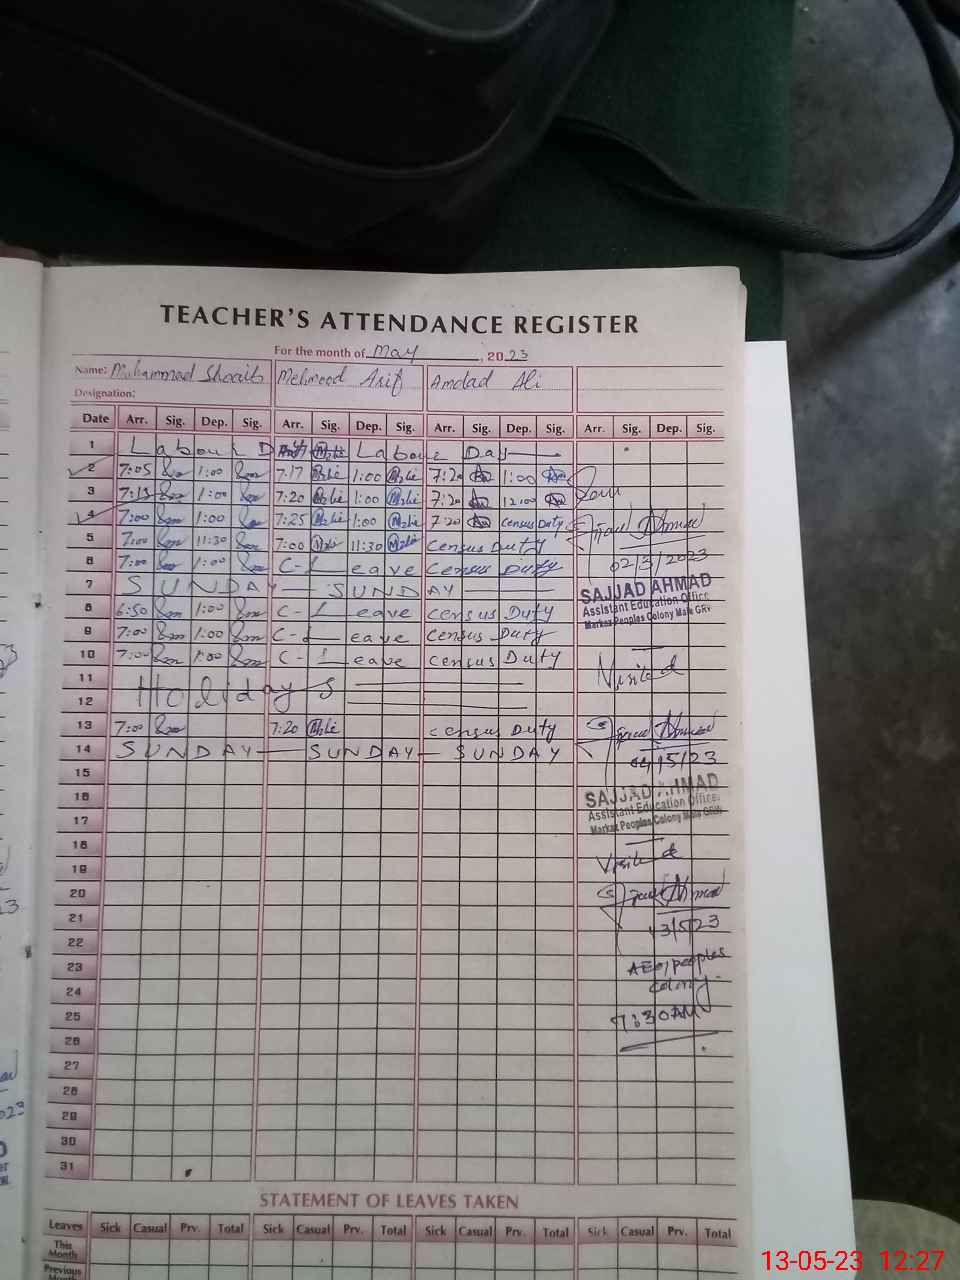 TEACHER'S ATTENDANCE REGISTER
For the month of May, 2023
Name: Muhammad Shoaib Mehmood Arif Amdad Ali
Designation:
Date Arr. Sig. Dep. Sig. Arr. Sig. Dep. Sig. Arr. Sig. Dep. Sig. Arr. Sig. Dep. Sig.
1 Labour Day Labour Day
2 7:05 1:00 7:17 1:00 7:20 1:00
3 7:15 1:00 7:20 1:00 7:20 12:00
4 7:00 1:00 7:25 1:00 7:20 Census Duty
5 7:00 11:30 7:00 11:30 Census Duty
6 7:00 1:00 C-Leave Census Duty
7 SUNDAY SUNDAY
8 6:50 1:00 C-Leave Census Duty
9 7:00 1:00 C-Leave Census Duty
10 7:00 1:00 C-Leave Census Duty
11 Holidays
12
13 7:00 7:20 Census Duty
14 SUNDAY SUNDAY SUNDAY
15
16
17
18
19
20
21
22
23
24
25
26
27
28
29
30
31
02/3/2023
SAJJAD AHMAD
Assistant Education Office
Markaz Peoples Colony Male GRW
Visited
04/5/23
SAJJAD AHMAD
Assistant Education Officer
Markaz Peoples Colony Male GRW
Visited
13/5/23
AEO, peoples
colony.
7:30AM
STATEMENT OF LEAVES TAKEN
Leaves Sick Casual Prv. Total Sick Casual Prv. Total Sick Casual Prv. Total Sick Casual Prv. Total
This
Month
Previous
Month
13-05-23 12:27